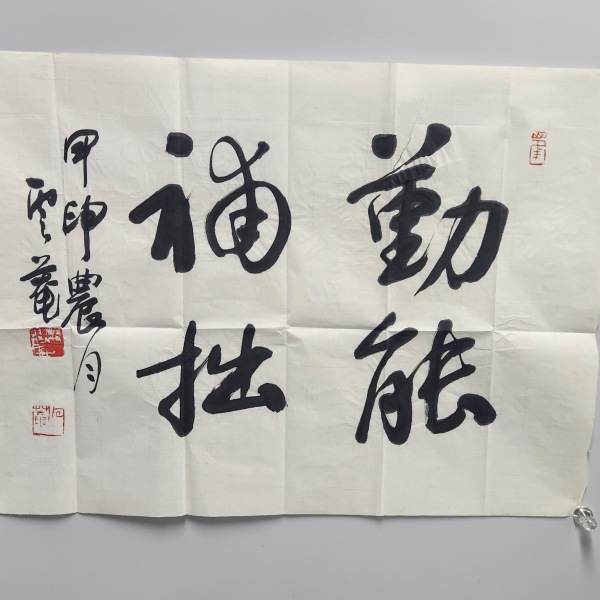 勤能
補拙
甲申農月
雲菴